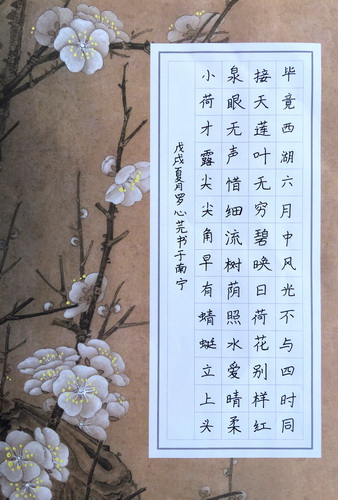 毕竟西湖六月中风光不与四时同
接天莲叶无穷碧映日荷花别样红
泉眼无声惜细流树荫照水爱晴柔
小荷才露尖尖角早有蜻蜓立上头
戊戌夏月罗心芫书于南宁